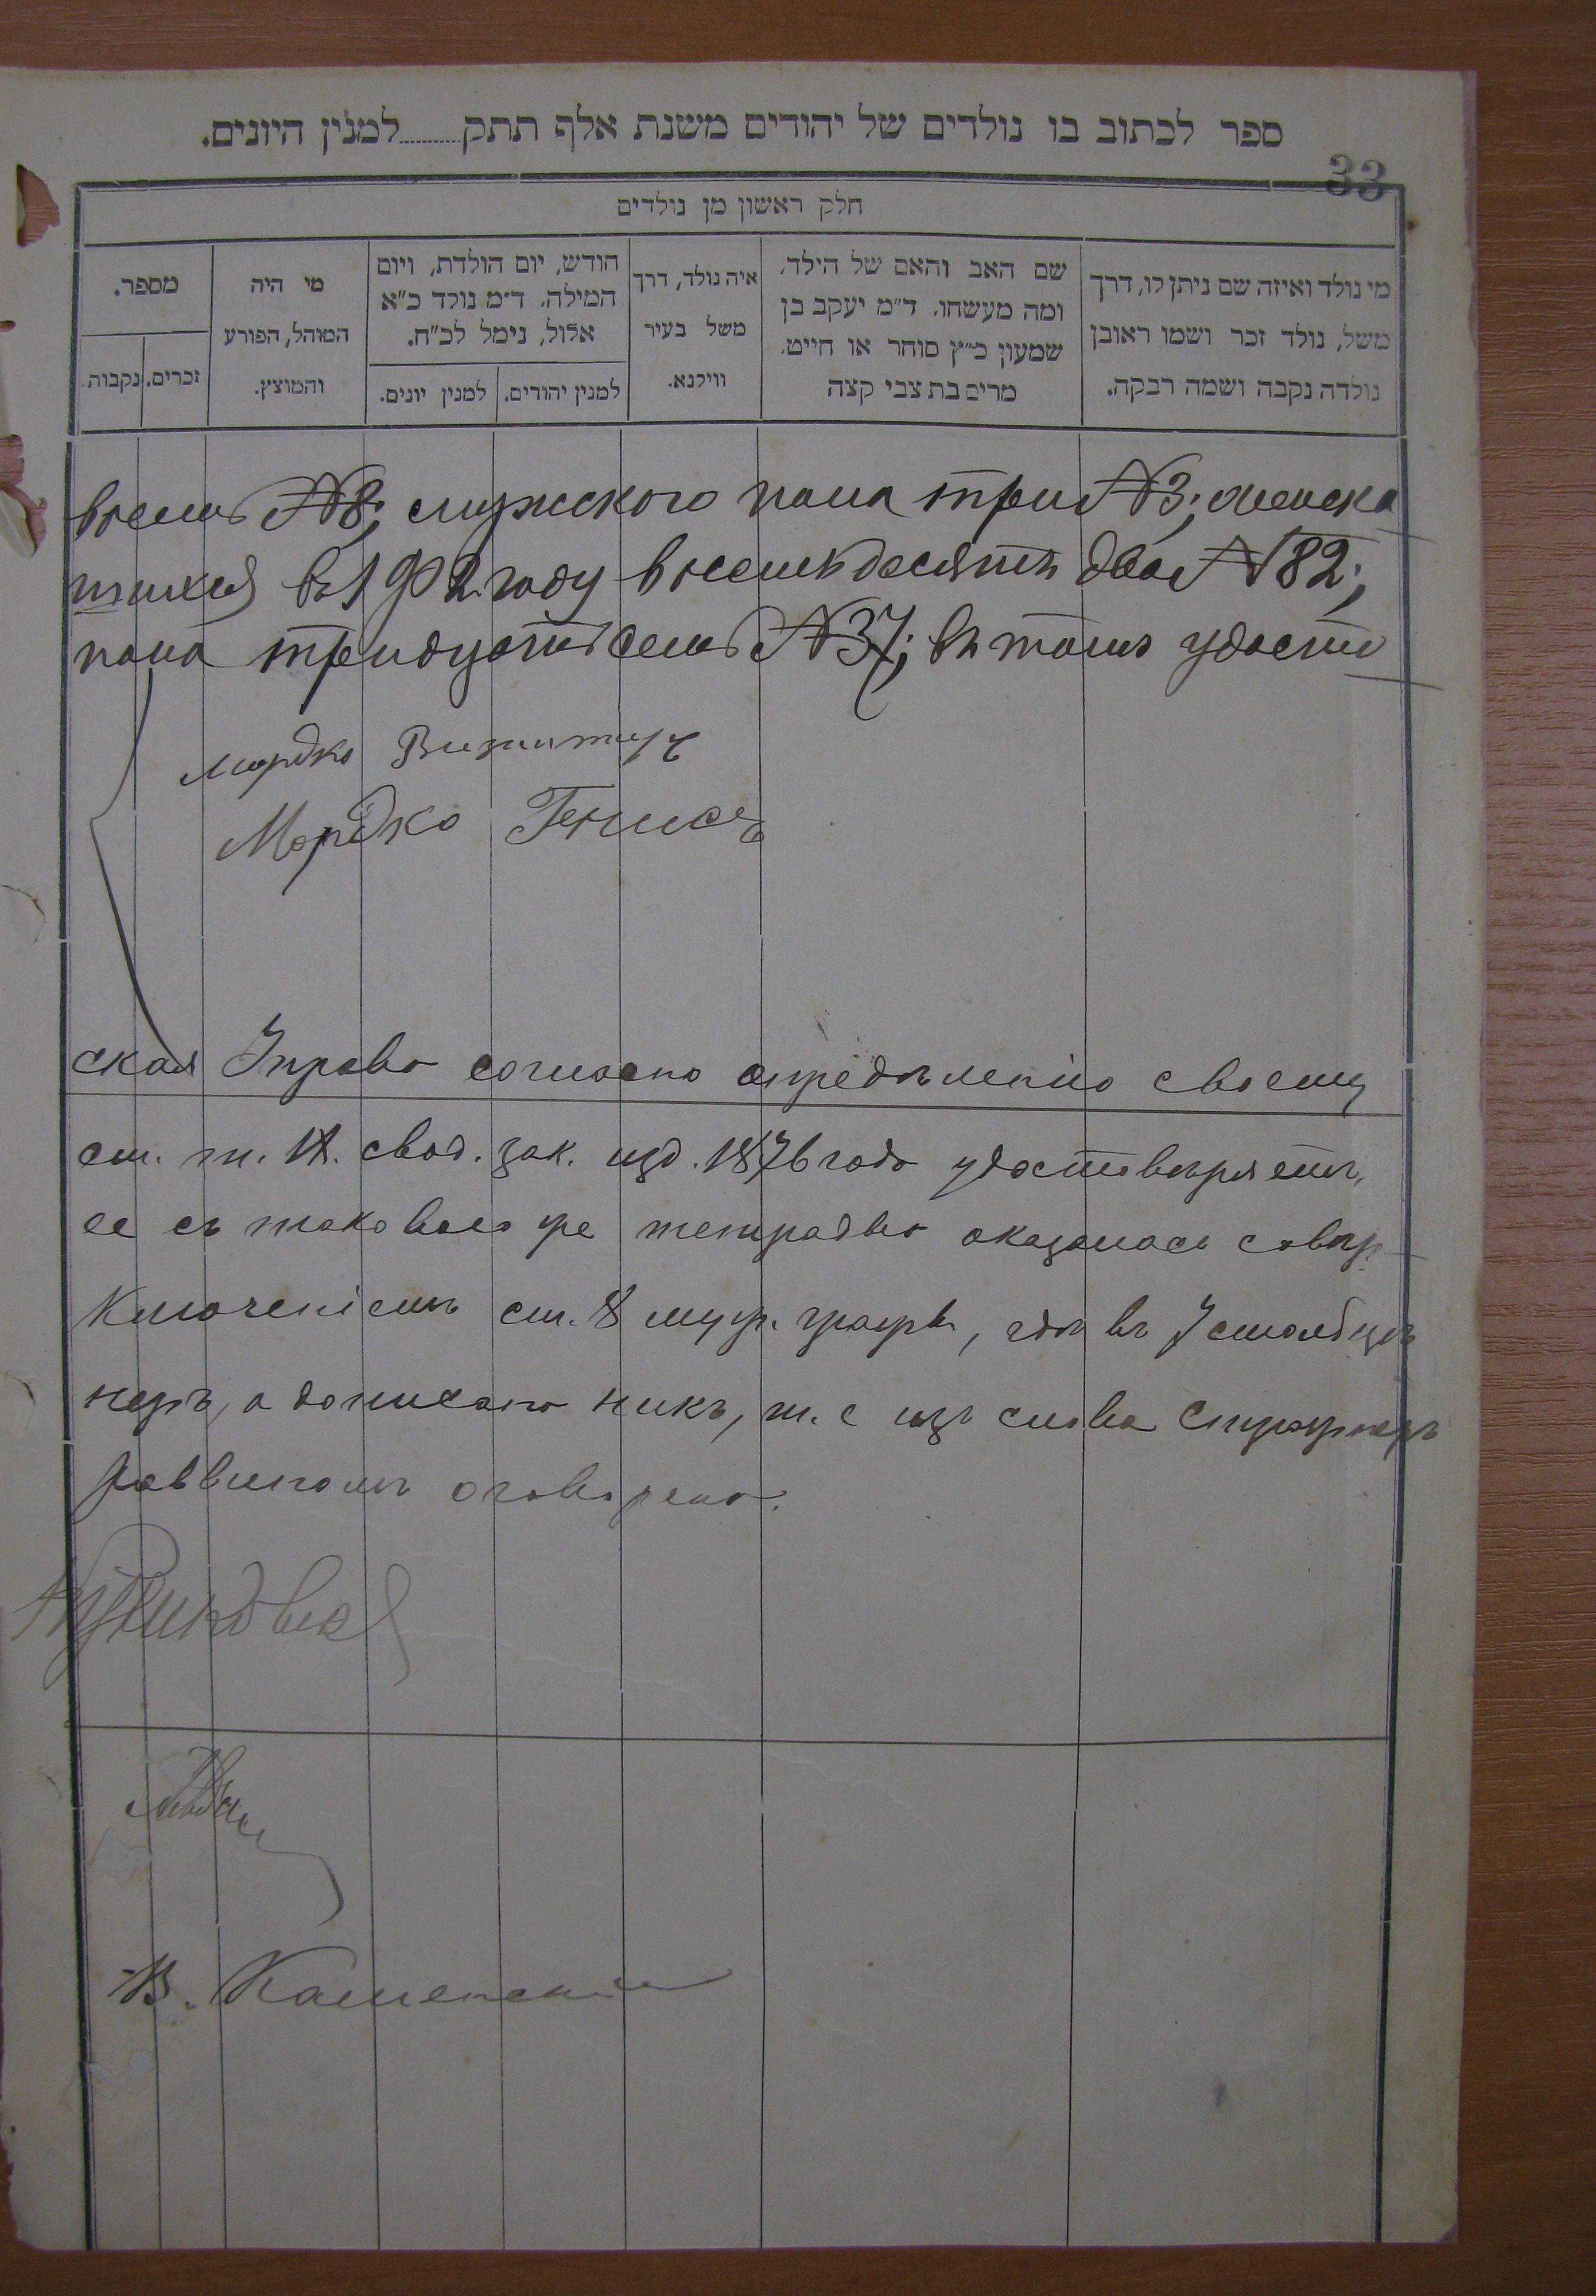 ספר לכתוב בו נולדים של יהודים משנת אלף תתק.........למנין היונים.
33
חלק ראשון מן נולדים
מי נולד ואיזה שם ניתן לו, דרך
משל, נולד זכר ושמו ראובן
נולדה נקבה ושמה רבקה.
שם האב והאם של הילד,
ומה מעשהו. ד״מ יעקב בן
שמעון כ״ץ סוחר או חייט,
מרים בת צבי קצה
איה נולד, דרך
משל בעיר
ווילנא.
חודש, יום הולדת, ויום
המילה, ד״מ נולד כ״א
אלול, נימל לכ״ח.
למנין יהודים.
למנין יונים.
מי היה
המוהל, הפורע
והמוצץ.
מספר.
זכרים.
נקבות.
восемь №8; мужского пола три №3; женска
въ 1912 году восемьдесятъ два №82;
пола тридцать семь №37; въ томъ удосто
Мордко
Мордко Генисъ
ская Управа согласно опредѣленію своему
ст. т. IX. свод. зак. изд. 1876 года удостовѣряетъ,
ее съ таковою же тетрадью оказалась свѣр
ключеніемъ ст. 8 муж. графы, гдѣ въ 7 столбцѣ
а дописано никъ, т. е изъ слова
раввиномъ оговорено.
В. Каменскій